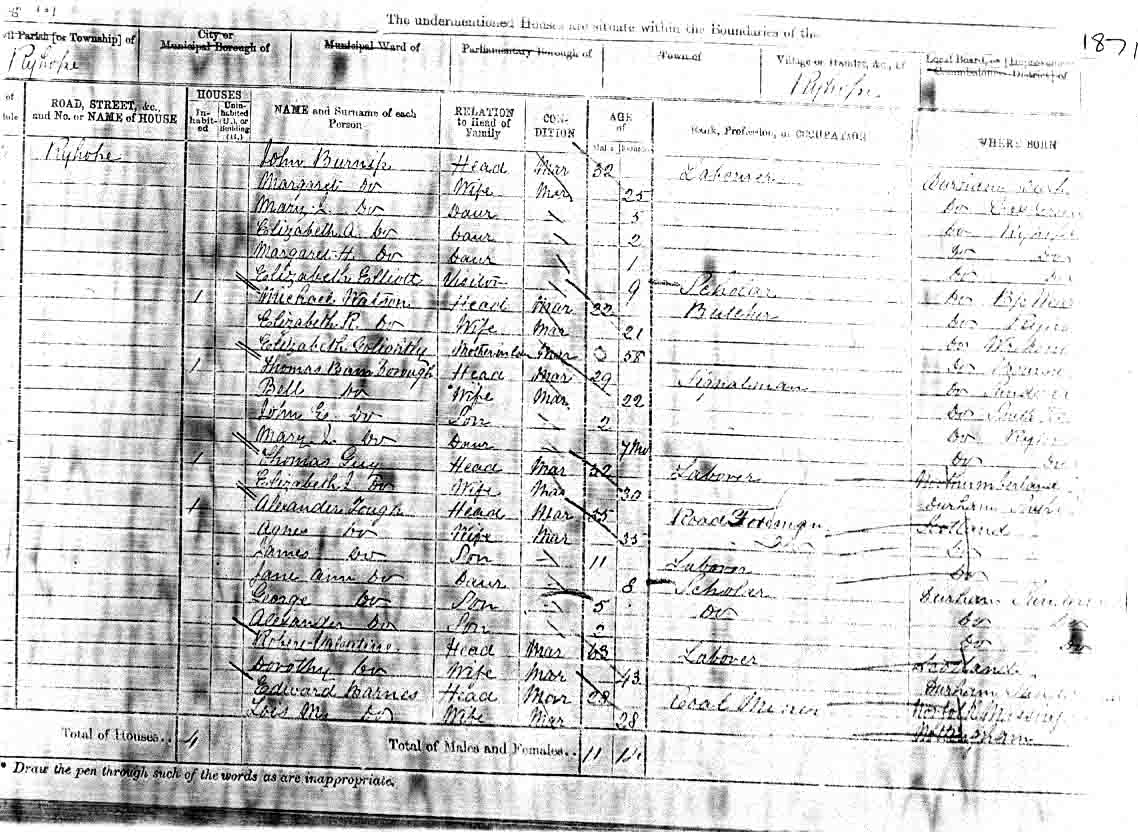 The undermentioned Houses are situate within the Boundaries of the
1871
Parish [or Township] of City or Municipal Borough of Municipal Ward of Parliamentary Borough of Town of Village or Hamlet, &c., of Local Board, or [Improvement Commissioners District] of
Ryhope Ryhope
ROAD, STREET, &c., and No. or NAME of HOUSE HOUSES In-habit-ed Unin-habited (U.), or Building (B.) NAME and Surname of each Person RELATION to Head of Family CON-DITION AGE of Rank, Profession, or OCCUPATION WHERE BORN
Ryhope John Burnip Head Mar 32 Labourer Durham
Margaret Do Wife Mar 25 Do
Mary Do Daur 5 Do
Elizabeth A. Do Daur 2 Do Do
Margaret H. Do Daur 1 Do
Elizabeth Elliott Visitor 9 Scholar Do
1 Michael Watson Head Mar 22 Butcher Do
Elizabeth R. Do Wife Mar 21 Do
Elizabeth Golightly Mother in Law Mar 58 Do
1 Thomas Bamborough Head Mar 29 Signalman Do
Bell Do Wife Mar 22 Do
John E. Do Son 2 Do
Mary Do Daur 7 Mo Do
1 Thomas Guy Head Mar Labover Northumberland
Elizabeth Do Wife Mar 30 Durham
1 Alexander Tough Head Mar Road Foreman Scotland
Agnes Do Wife Mar 35 Do
James Do Son 11 Labover Do
Jane Ann Do Daur 8 Scholar Durham
George Do Son 5 Do Do
Alexander Do Son 2 Do
Robert Valentine Head Mar 63 Labover Scotland
Dorothy Do Wife Mar 43 Durham
Edward Barnes Head Mar 28 Coal Miner Norfolk
Lois M. Do Wife Mar 28
Total of Houses.. 4 Total of Males and Females.. 11 14
* Draw the pen through such of the words as are inappropriate.